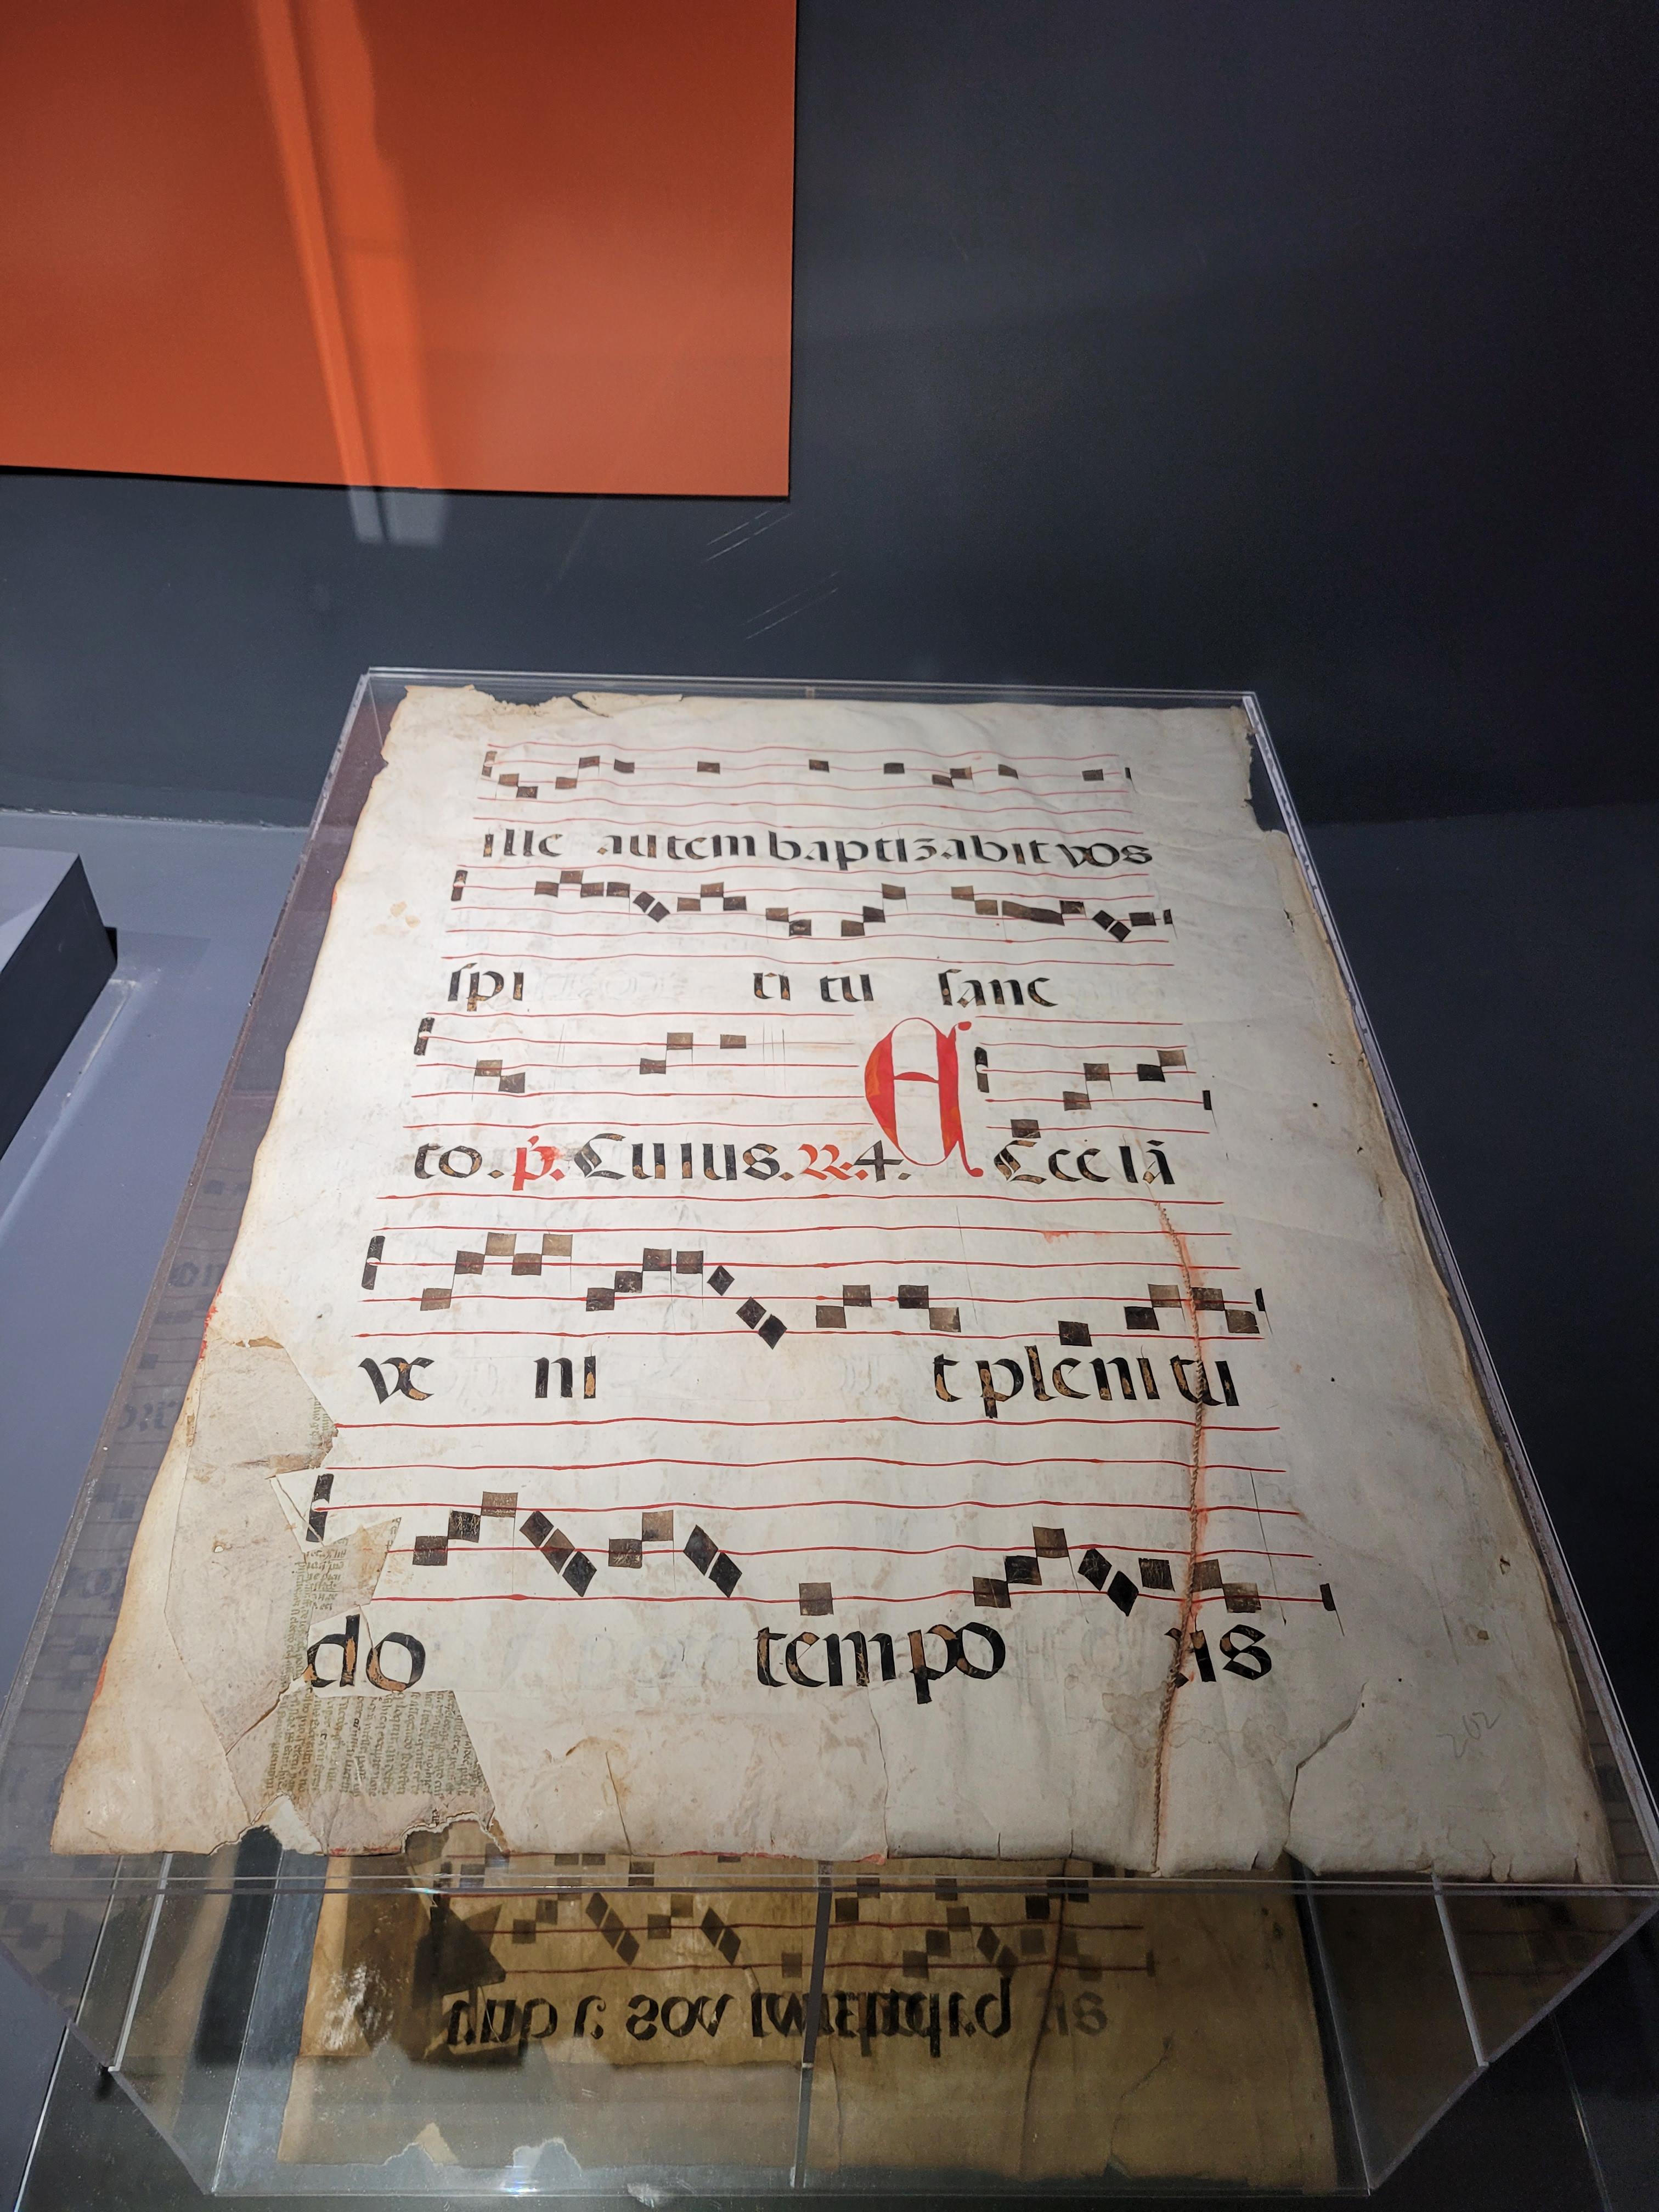 ille autem baptizabit vos
spi ri tu sanc
to. p. Cuius. R. 4. A Ecce iā
ve ni t pleni tu
do tempo ris
202